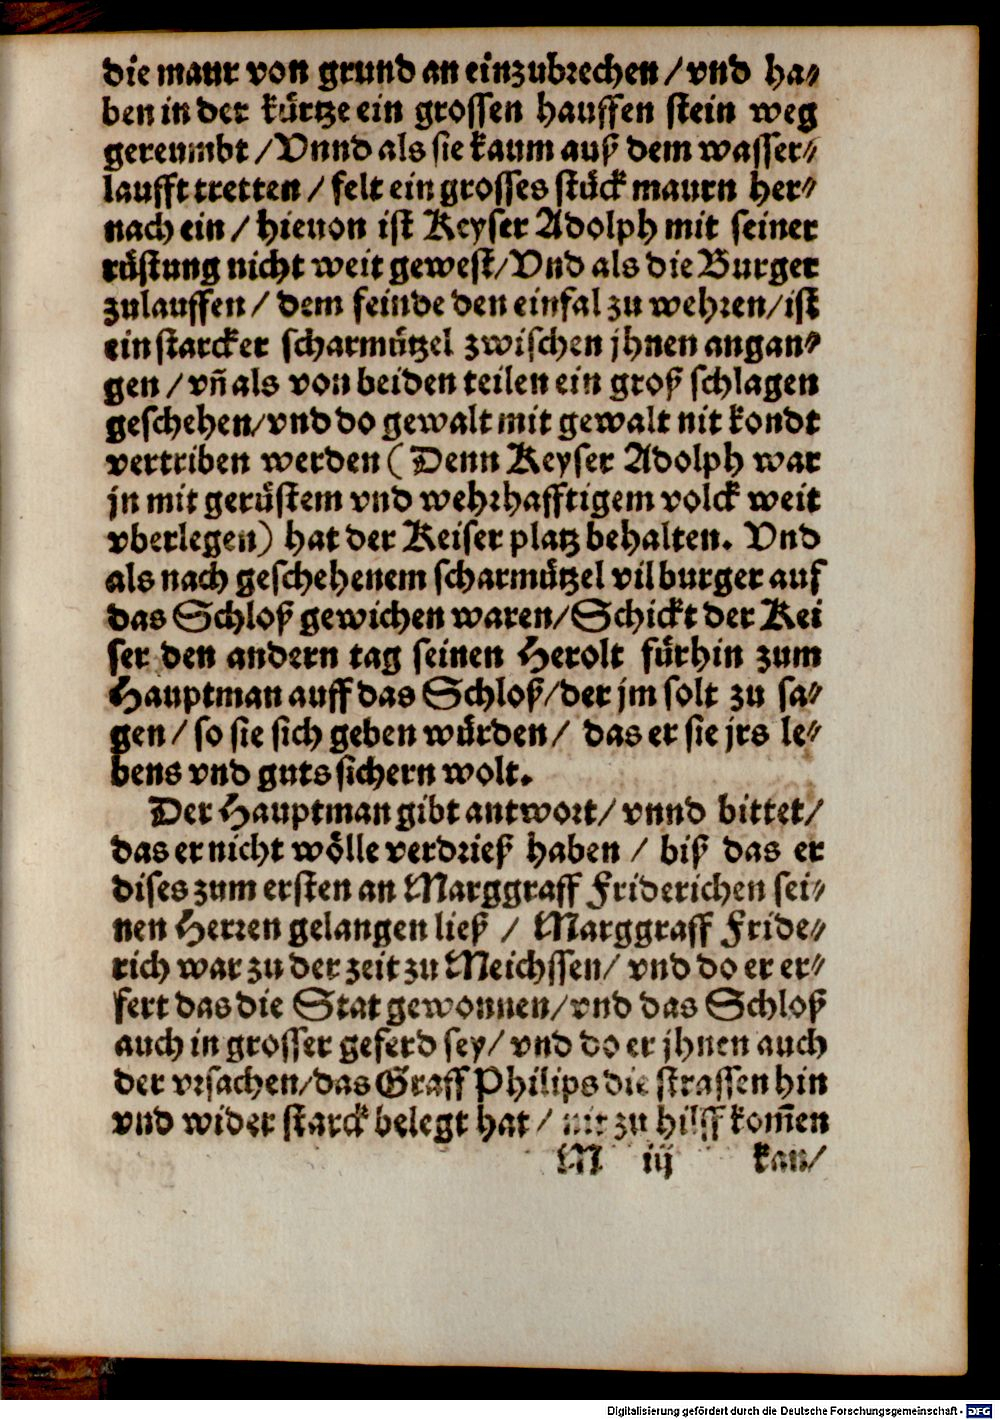 die maur von grund an einzubrechen / vnd ha⸗
ben in der kürtze ein grossen hauffen stein weg
gereumbt / Vnnd als sie kaum auß dem wasser⸗
laufft tretten / felt ein grosses stück maurn her⸗
nach ein / hieuon ist Keyser Adolph mit seiner
rüstung nicht weit gewest / Vnd als die Burger
zulauffen / dem feinde den einfal zu wehren / ist
ein starcker scharmützel zwischen jhnen angan⸗
gen / vñ als von beiden teilen ein groß schlagen
geschehen / vnd do gewalt mit gewalt nit kondt
vertriben werden ( Denn Keyser Adolph war
jn mit gerüstem vnd wehrhafftigem volck weit
vberlegen) hat der Keiser platz behalten. Vnd
als nach geschehenem scharmützel vil burger auf
das Schloß gewichen waren / Schickt der Kei
ser den andern tag seinen Herolt fürhin zum
Hauptman auff das Schloß / der jm solt zu sa⸗
gen / so sie sich geben würden / das er sie jrs le⸗
bens vnd guts sichern wolt.
Der Hauptman gibt antwort / vnnd bittet /
das er nicht wölle verdrieß haben / biß das er
dises zum ersten an Marggraff Friderichen sei⸗
nen Herren gelangen ließ / Marggraff Fride⸗
rich war zu der zeit zu Meichssen / vnd do er er⸗
fert das die Stat gewonnen / vnd das Schloß
auch in grosser geferd sey / vnd do er jhnen auch
der vrsachen / das Graff Philips die strassen hin
vnd wider starck belegt hat / nit zu hilff kom̃en
M iij kan /
Digitalisierung gefördert durch die Deutsche Forschungsgemeinschaft - DFG